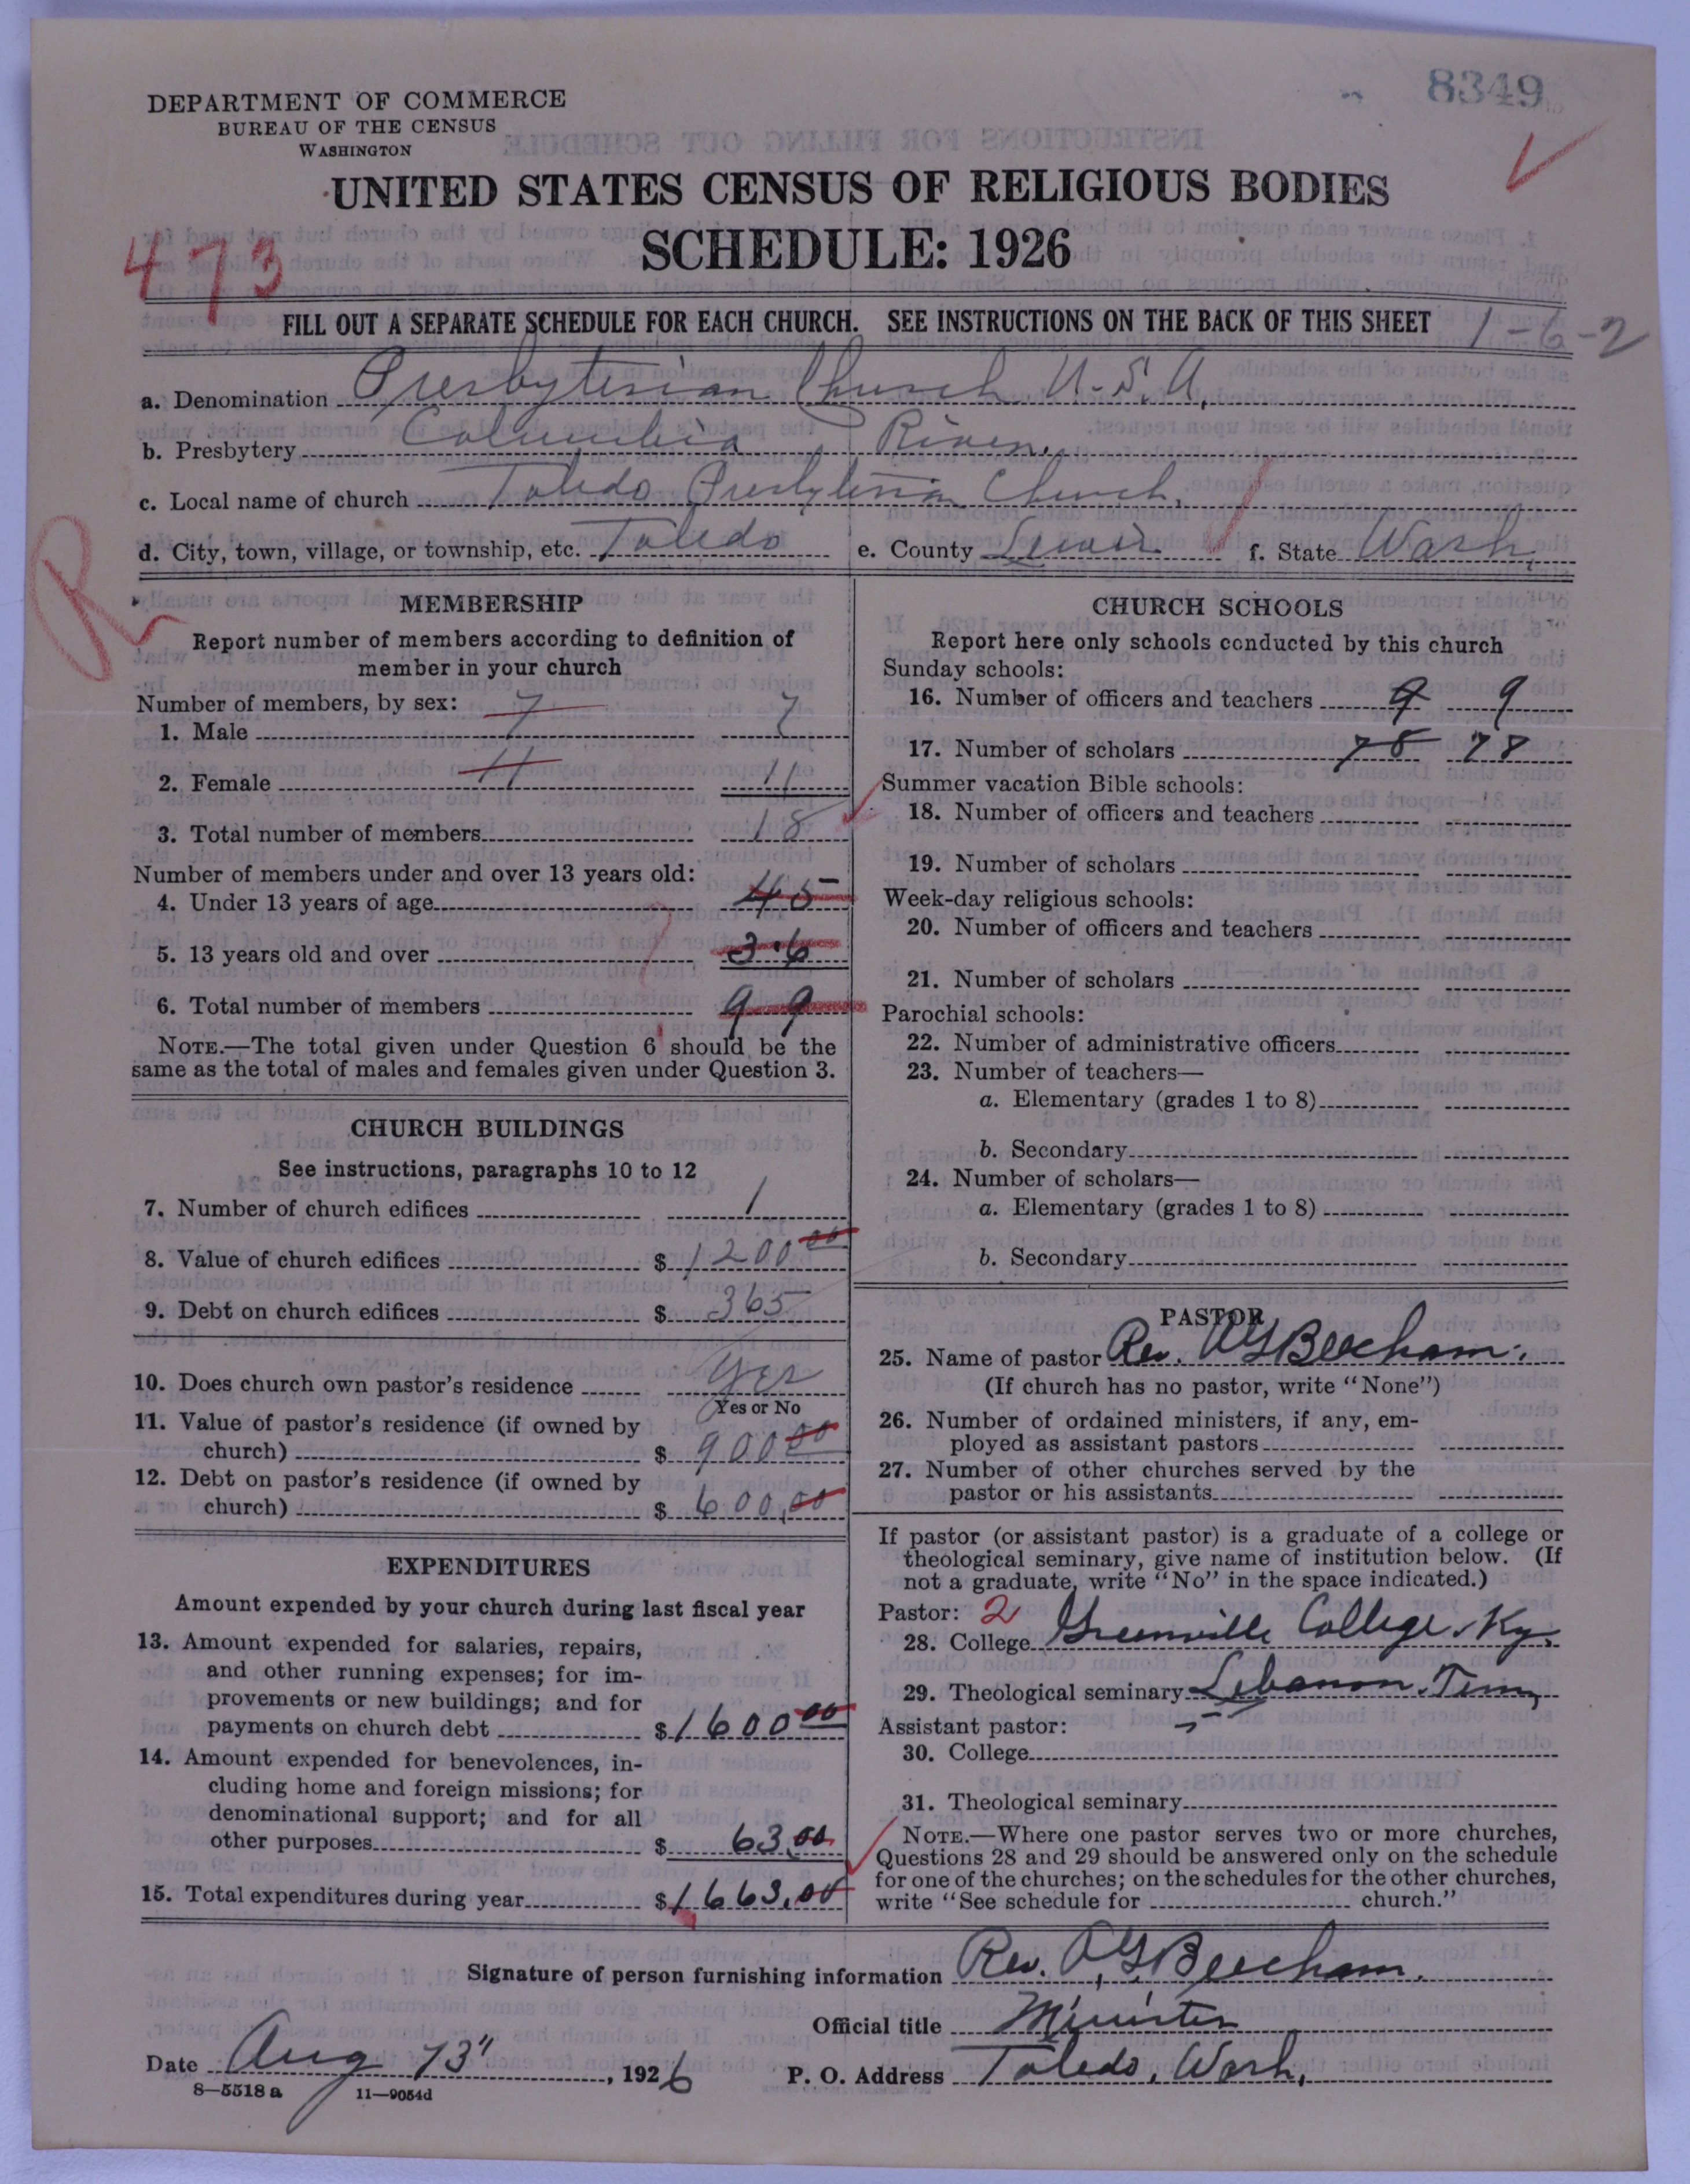 8349
DEPARTMENT OF COMMERCE
BUREAU OF THE CENSUS
WASHINGTON
UNITED STATES CENSUS OF RELIGIOUS BODIES
SCHEDULE: 1926
473
FILL OUT A SEPARATE SCHEDULE FOR EACH CHURCH. SEE INSTRUCTIONS ON THE BACK OF THIS SHEET 1-6-2
a. Denomination Presbyterian Church U.S.A.
b. Presbytery Columbia River.
c. Local name of church Toledo Presbyterian Church.
d. City, town, village, or township, etc. Toledo e. County Lewis f. State Wash.
R
MEMBERSHIP
Report number of members according to definition of
member in your church
Number of members, by sex:
1. Male 7 7
2. Female 11 11
3. Total number of members 18
Number of members under and over 13 years old:
4. Under 13 years of age 45
5. 13 years old and over 36
6. Total number of members 99
NOTE.—The total given under Question 6 should be the
same as the total of males and females given under Question 3.
CHURCH BUILDINGS
See instructions, paragraphs 10 to 12
7. Number of church edifices 1
8. Value of church edifices $ 1200 00
9. Debt on church edifices $ 365
10. Does church own pastor's residence Yes
Yes or No
11. Value of pastor's residence (if owned by
church) $ 900 00
12. Debt on pastor's residence (if owned by
church) $ 600.00
EXPENDITURES
Amount expended by your church during last fiscal year
13. Amount expended for salaries, repairs,
and other running expenses; for im-
provements or new buildings; and for
payments on church debt $ 1600 00
14. Amount expended for benevolences, in-
cluding home and foreign missions; for
denominational support; and for all
other purposes $ 63.00
15. Total expenditures during year $ 1663.00
CHURCH SCHOOLS
Report here only schools conducted by this church
Sunday schools:
16. Number of officers and teachers 9 9
17. Number of scholars 78 78
Summer vacation Bible schools:
18. Number of officers and teachers
19. Number of scholars
Week-day religious schools:
20. Number of officers and teachers
21. Number of scholars
Parochial schools:
22. Number of administrative officers
23. Number of teachers—
a. Elementary (grades 1 to 8)
b. Secondary
24. Number of scholars—
a. Elementary (grades 1 to 8)
b. Secondary
PASTOR
25. Name of pastor Rev. O G Beecham.
(If church has no pastor, write "None")
26. Number of ordained ministers, if any, em-
ployed as assistant pastors
27. Number of other churches served by the
pastor or his assistants
If pastor (or assistant pastor) is a graduate of a college or
theological seminary, give name of institution below. (If
not a graduate, write "No" in the space indicated.)
Pastor: 2
28. College Greenville College. Ky.
29. Theological seminary Lebanon. Tenn
Assistant pastor:
30. College
31. Theological seminary
NOTE.—Where one pastor serves two or more churches,
Questions 28 and 29 should be answered only on the schedule
for one of the churches; on the schedules for the other churches,
write "See schedule for church."
Signature of person furnishing information Rev. O. G. Beecham.
Official title Minister
Date Aug 13", 1926 P. O. Address Toledo, Wash.
8—5518 a 11—9054d